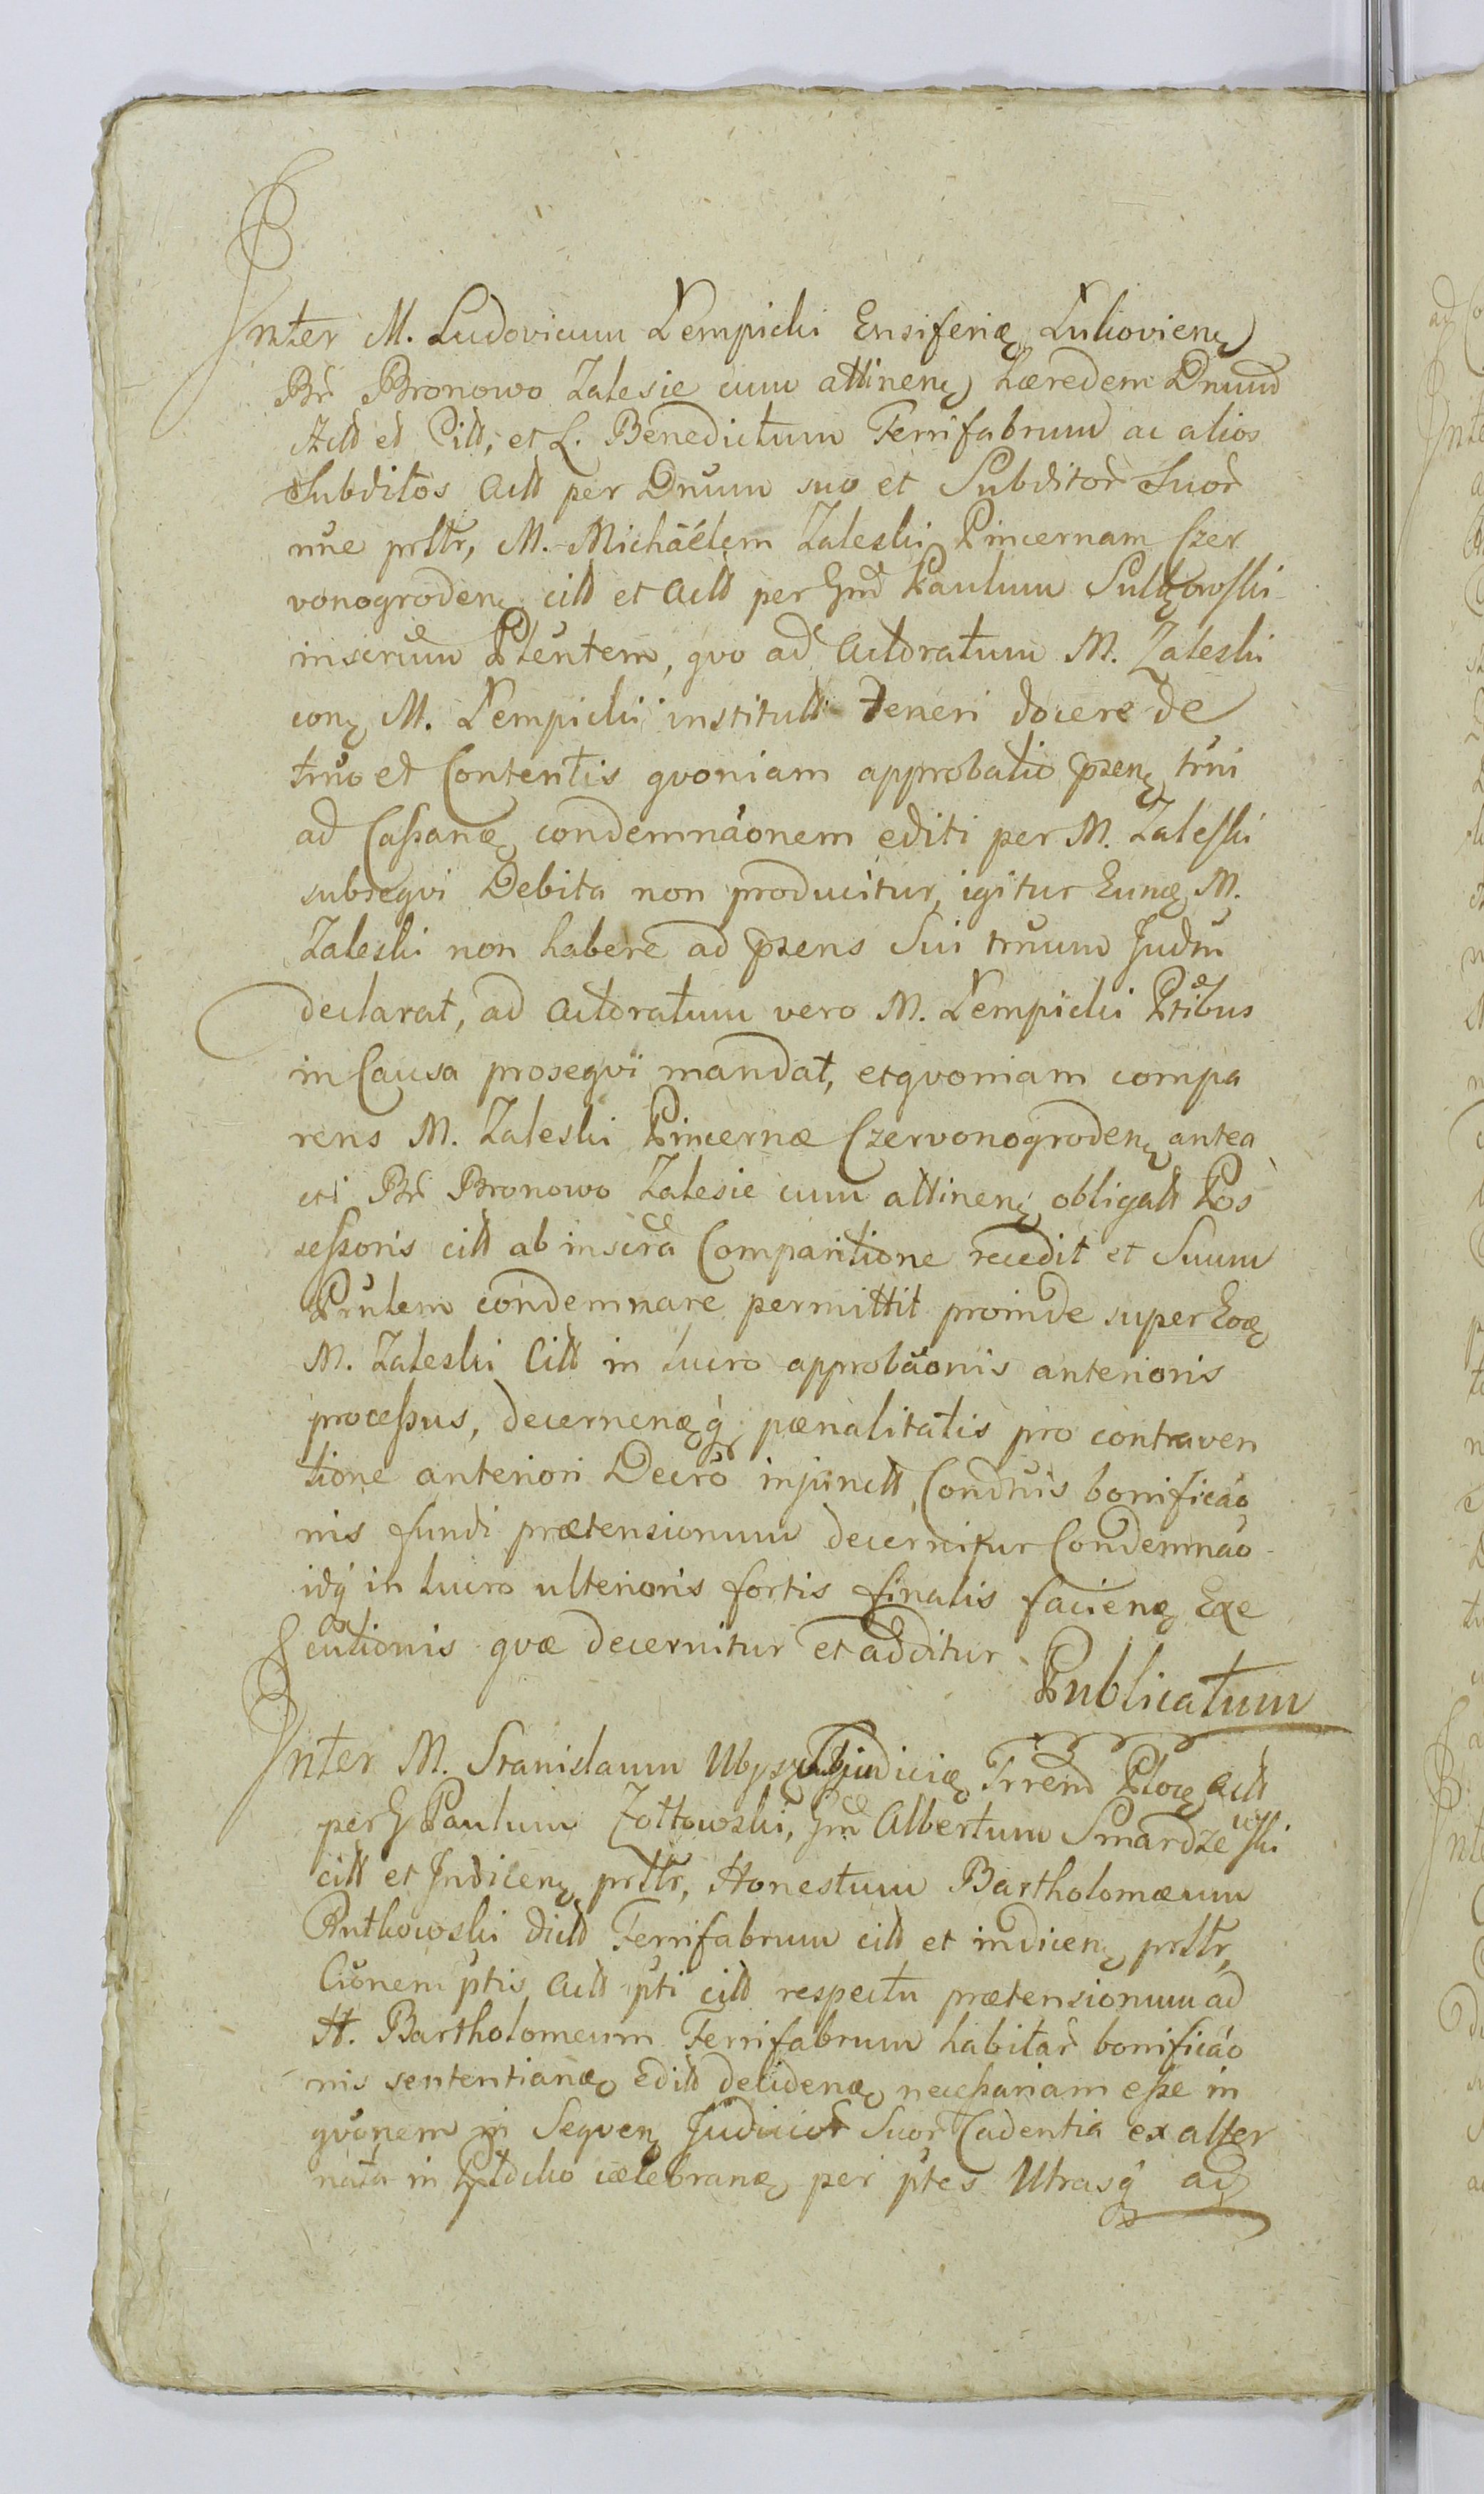 Inter M. Ludovicum Łempicki Ensiferię Łukovienę
Br Bronowo Zalesie cum attinenę hæredem Dnum
Actt et Citt, et L. Benedictum Ferrifabrum ac alios
Subditos actt per Dnum suo et Subditor Suor
nne prttr, M. Michäelem Zaleski Pincernam Czer
vonogrodenę citt et actt per Gnd Paulum
inscrum Plentem, qvo ad Actoratum M. Zaleski
conę M. Łempicki institutt teneri docere de
trno et Contentis qvoniam approbatio psenę trni
ad Cassanę condemnaonem editi per M. Zaleski
subseqvi Debita non producitur, igitur Eunę M.
Zaleski non habere ad psens Sui trnum Judm
declarat, ad Actoratum vero M. Łempicki Ptibus
in Causa proseqvi mandat, et qvoniam compa
rens M. Zaleski Pincernæ Czervonogrodenę antea
uti Br Bronowo Zalesie cum attinenę obligatt Pos
sessoris citt ab inscra Comparitione recedit et Suum
Prnlem condemnare permittit proinde super Eoę
M. Zaleski Citt in lucro approbaonis anterioris
processus, decernenęq pænalitatis pro contraven
tione anteriori Decro injunctt, Condnis bonificao
nis fundi prætensionum decernitur Condemnao
idq in lucro ulterioris fortis finalis facienę Exe
cutionis qvæ decernitur et additur
Publicatum
Inter M. Stanislaum Ubysz Subjudicię Trrem Plocę actt
per G Paulum Zołtowski, Gm Albertum Smardzewski
citt et Indicenę prttr, Honestum Bartholomæum
Rutkowski dictt Ferrifabrum citt et indicenę prttr,
Cionem ptis actt pti citt respectu prætensionum ad
H. Bartholomeum Ferrifabrum habitar bonificao
nis sententianę editt decidenę necessariam esse in
qvonem in Seqvenę Judicior Suor Cadentia ex alter
nata in celebranę per ptes Utrasq ad